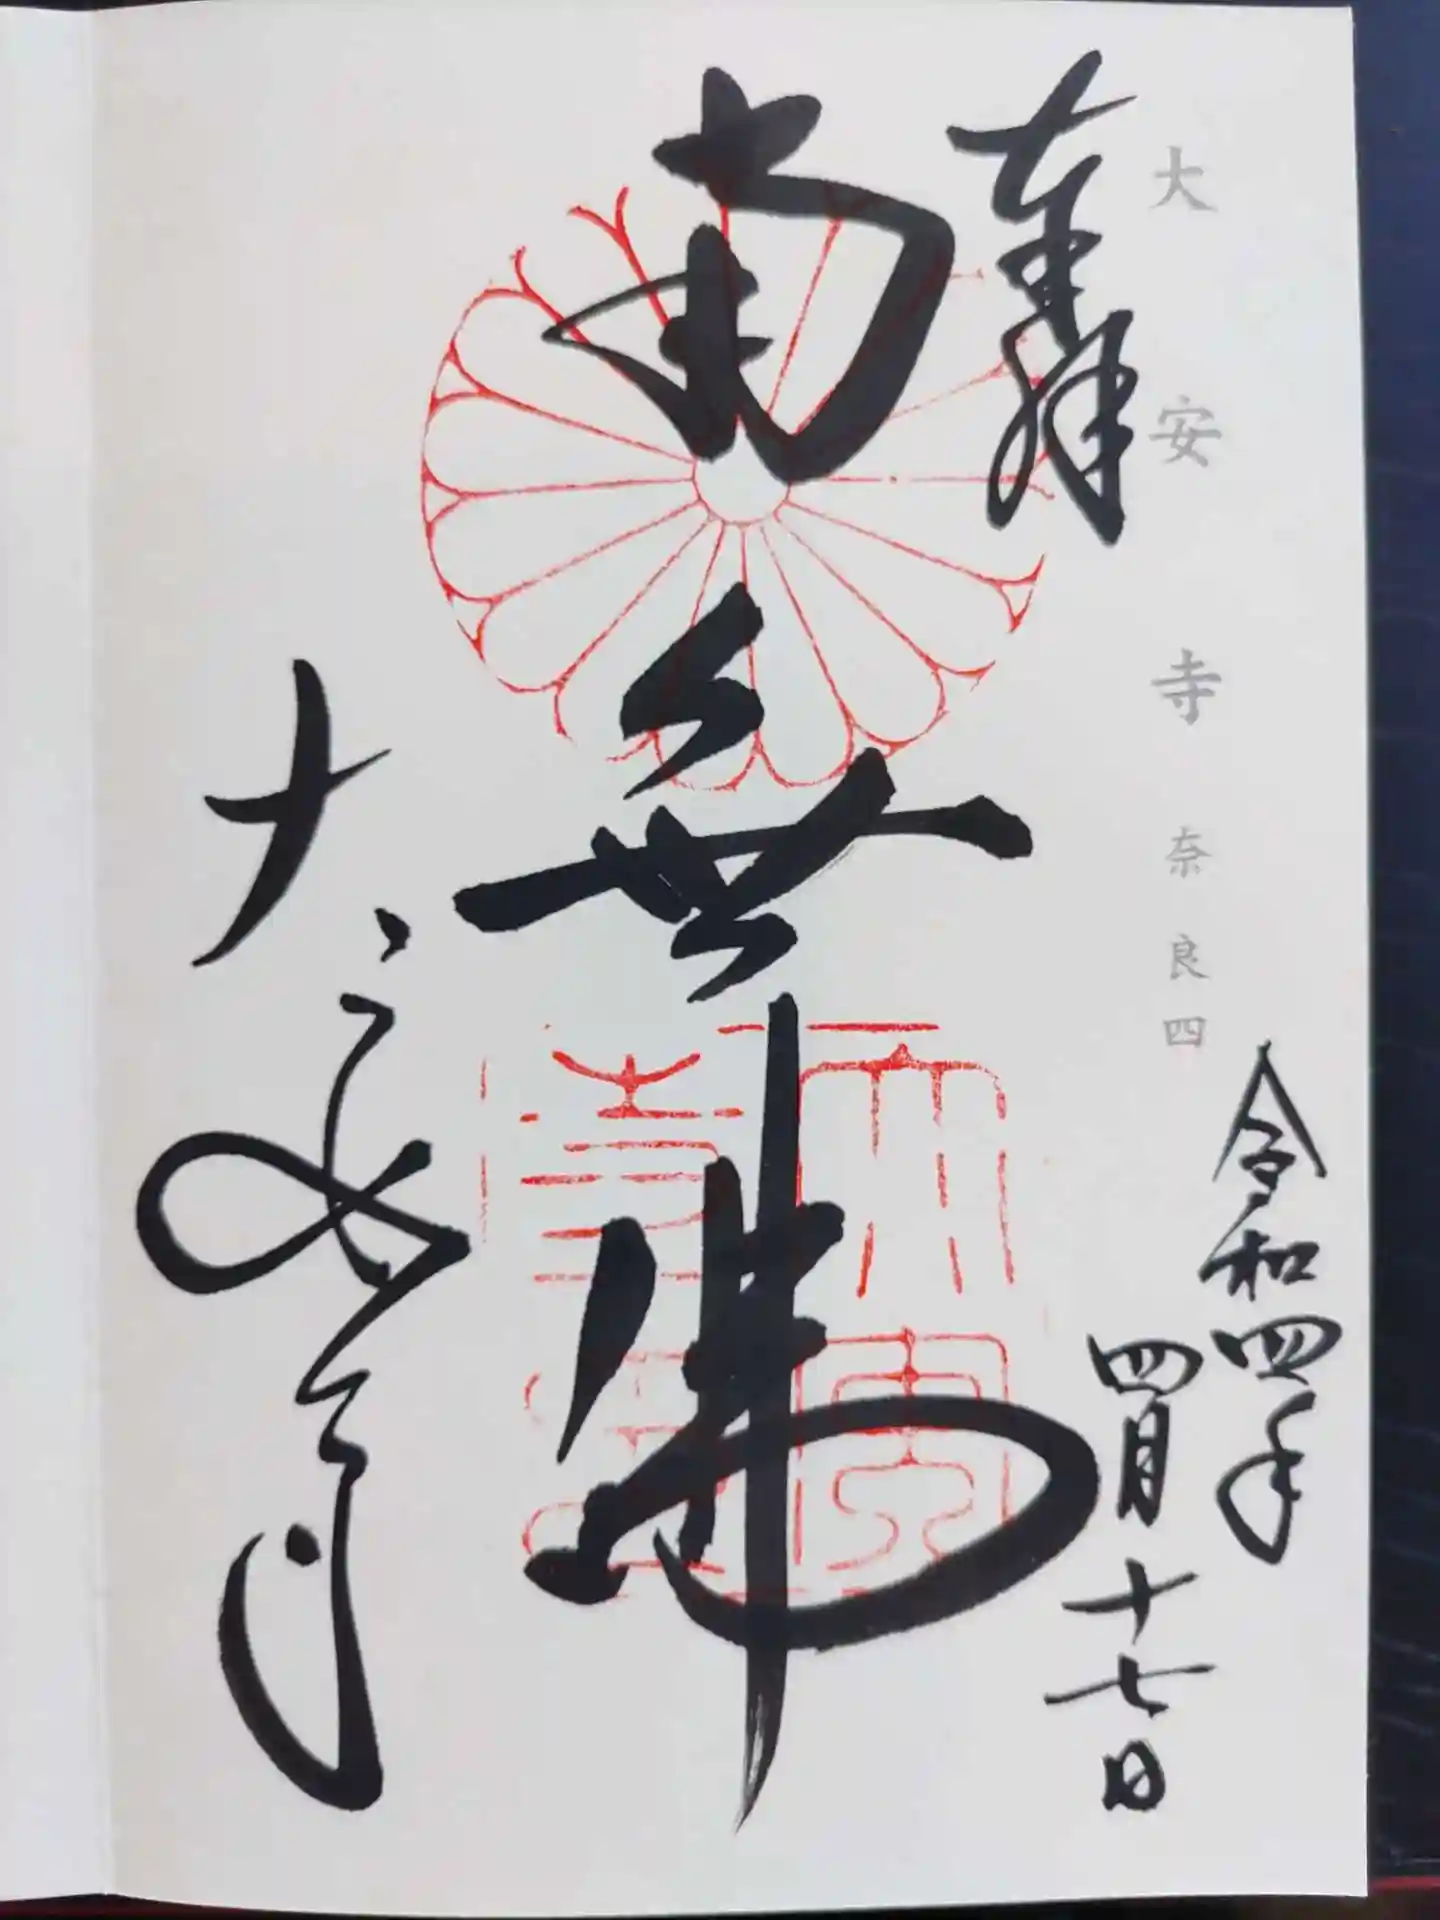 大安寺 奈良四
奉拝
令和四年
四月十七日
南無佛
大安寺